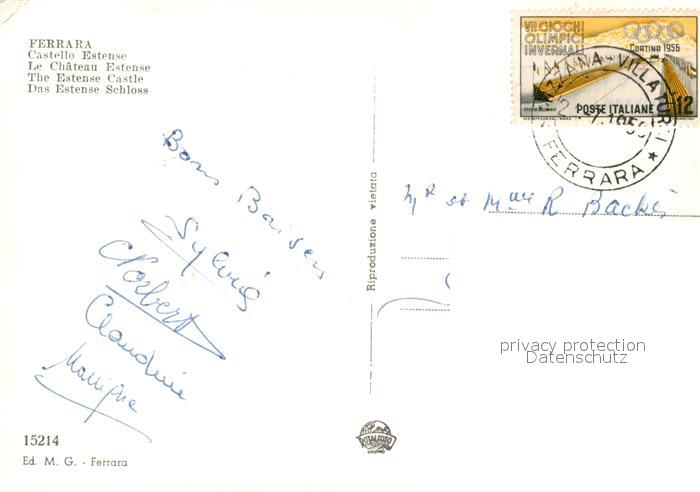 FERRARA
Castello Estense
Le Château Estense
The Estense Castle
Das Estense Schloss
VII GIOCHI
OLIMPICI
INVERNALI
CORTINA 1956
POSTE ITALIANE
12
FERRARA ★
Bons Baisers
Sylvia
Norbert
Claudine
Monique
Mr et Mme R Backès
Riproduzione vietata
privacy protection
Datenschutz
ROTALFOTO
MILANO
15214
Ed. M. G. - Ferrara